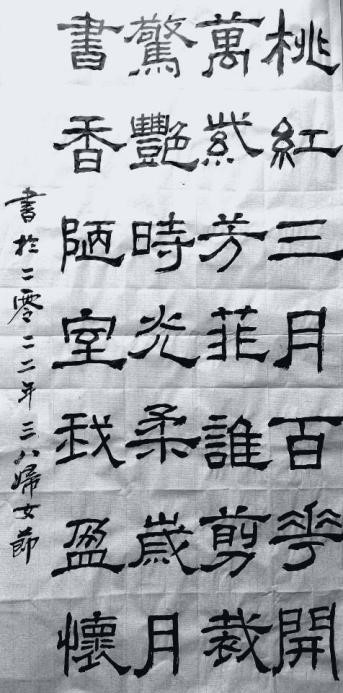 桃紅三月百花開
萬紫芳菲誰剪裁
驚艷時光柔歲月
書香陋室我盈懷
書於二零二二年三八婦女節